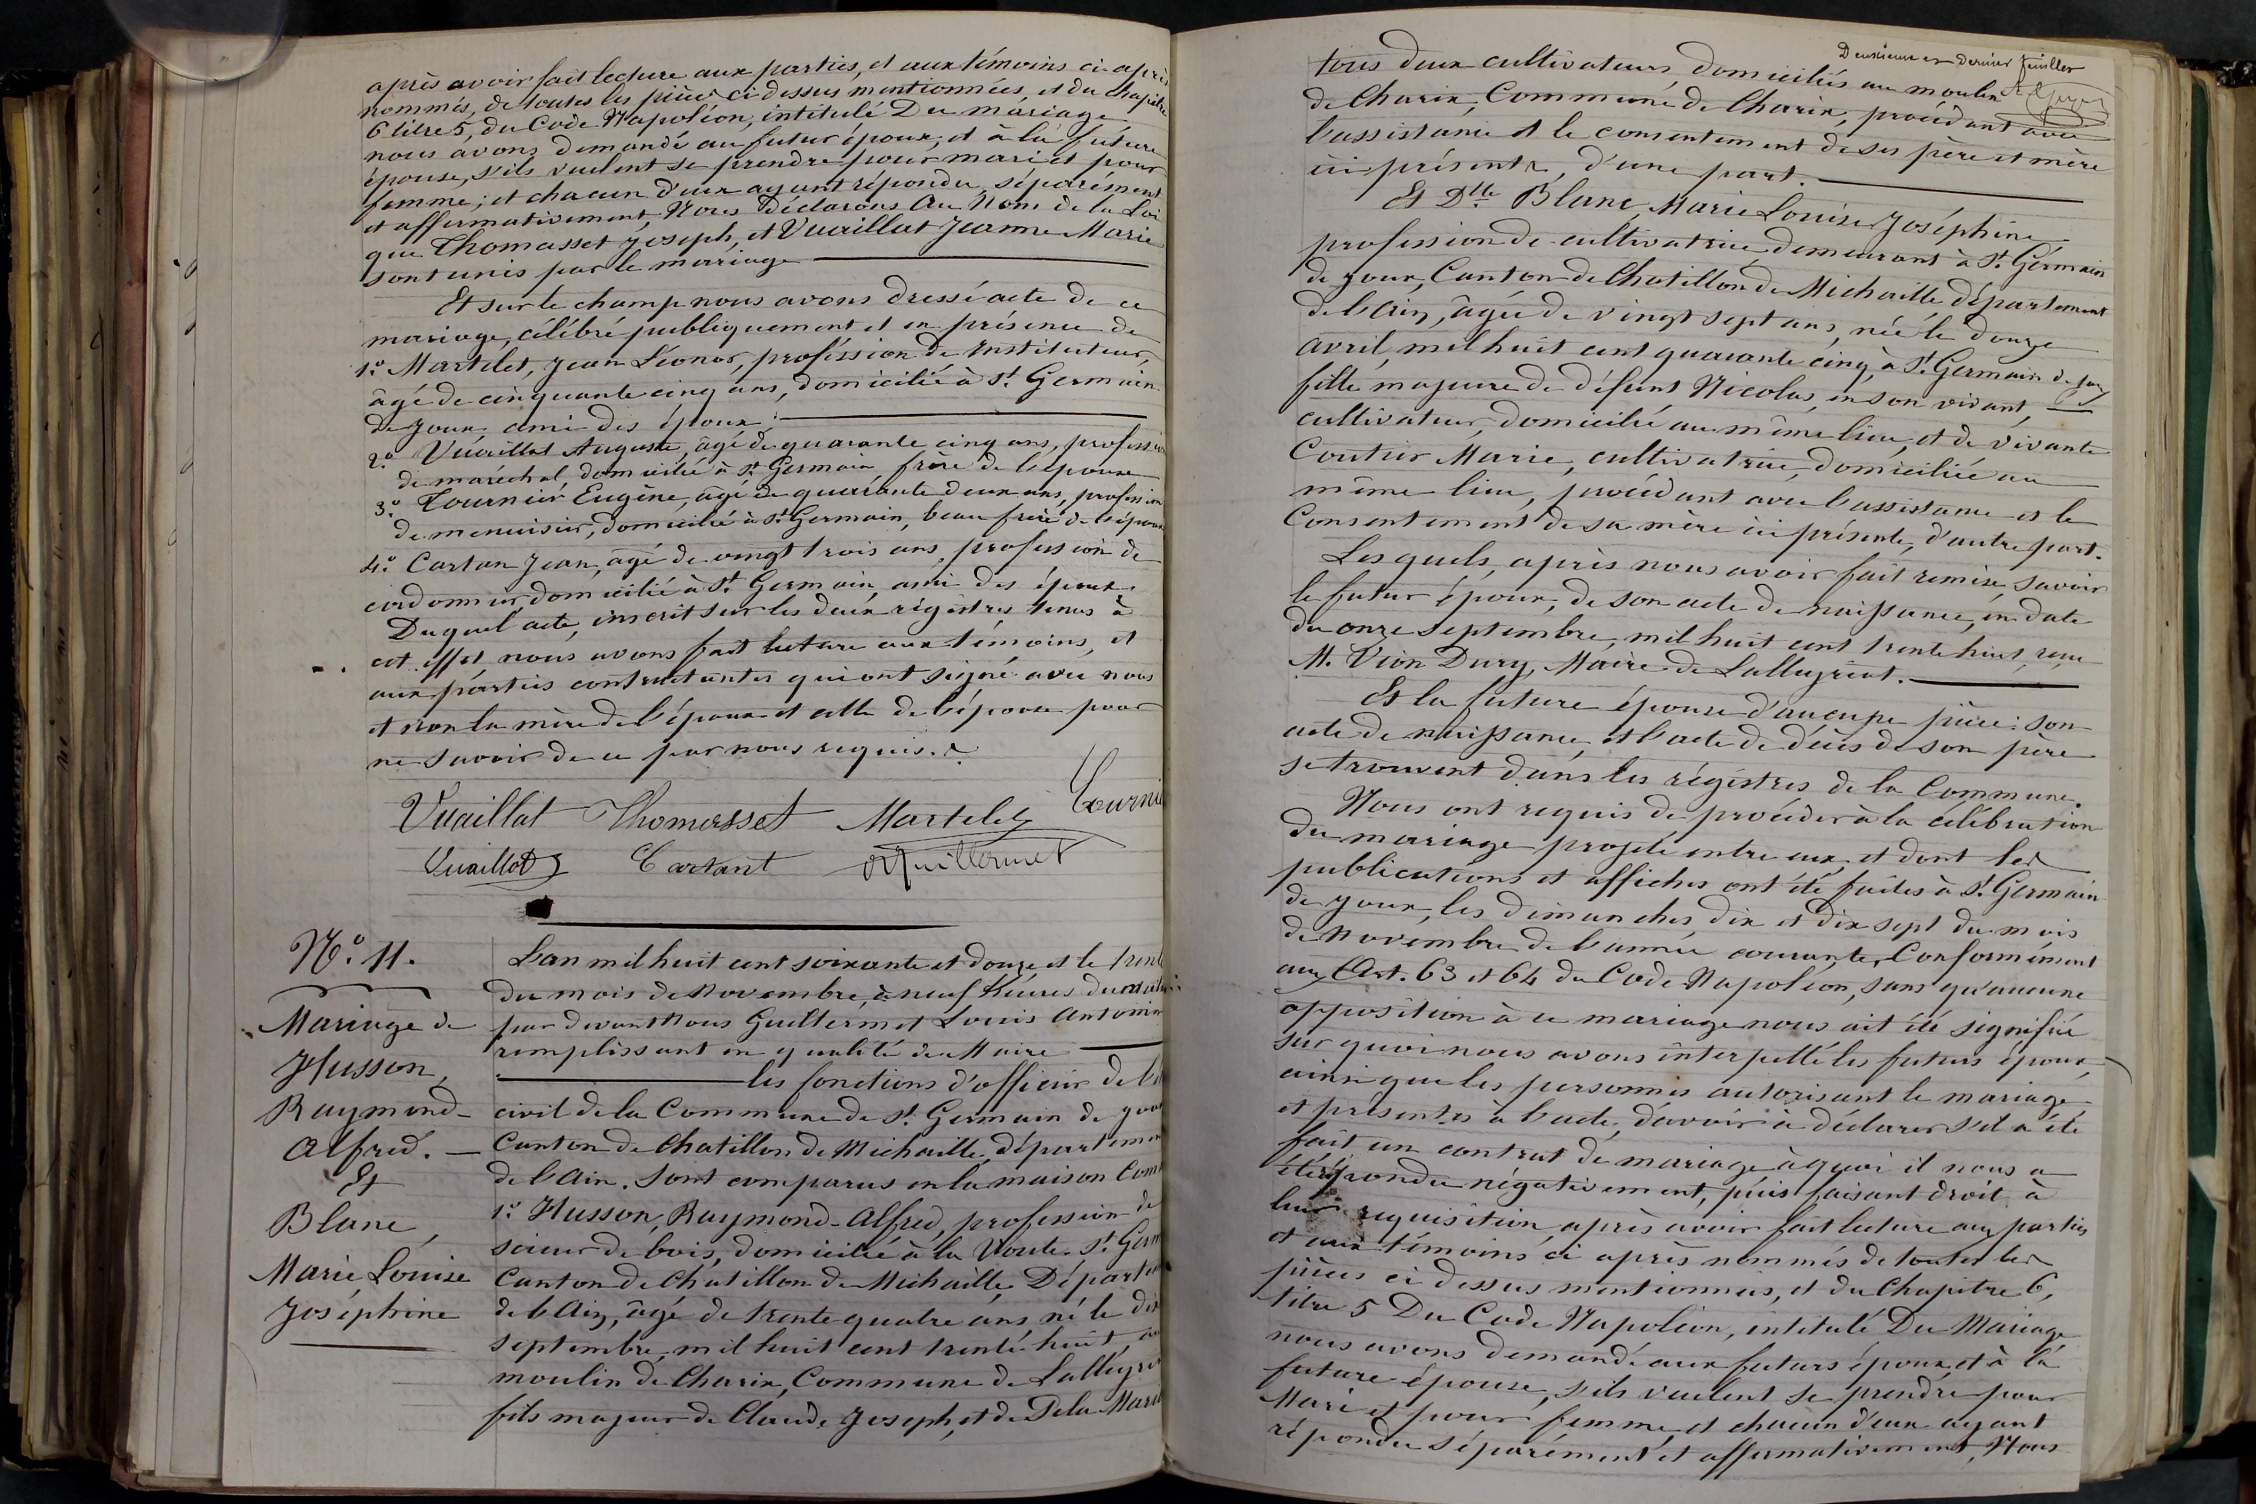 après avoir fait lecture aux parties, et aux témoins ci-après
nommés, de toutes les pièces ci dessus mentionnées, et du chapitre
6 titre 5, du Code Napoléon, intitulé Du mariage
nous avons demandé au futur époux, et à la future
épouse, s'ils veulent se prendre pour mari et pour
femme; et chacun d'eux ayant répondu séparément
et affirmativement, Nous Déclarons Au Nom de la Loi
que Thomasset Joseph, et Vuaillat Jeanne Marie
sont unis par le mariage
Et sur le champ nous avons dressé acte de ce
mariage, célébré publiquement et en présence de
1° Martelet, Jean Léonor, profession de Instituteur,
âgé de cinquante cinq ans, domicilié à St Germain
de Joux ami des époux;
2° Vuaillat Auguste, âgé de quarante cinq ans, profession
de maréchal domicilié à St Germain frère de l'épouse
3° Tournier Eugène, âgé de quarante deux ans, profession
de menuisier, domicilié à St Germain, beau frère de l'épouse
4° Cartan Jean, âgé de vingt trois ans, profession de
cordonnier, domicilié à St Germain, ami des époux.
Duquel acte, inscrit sur les deux régistres tenus à
cet effet nous avons fait lecture aux témoins, et
aux parties contractantes qui ont signé avec nous
et non la mère de l'époux et celle de l'épouse pour
ne savoir de ce par nous requis.
Vuaillat Thomasset Martelet Tournier
Vuaillat Cartant Guillermet
N° 11.
Mariage de
Husson,
Raymond-
Alfred.
Et
Blanc,
Marie Louise
Joséphine
L'an mil huit cent soixante et douze, et le trente
du mois de Novembre, à neuf heures du matin
par devant Nous Guillermet Louis Antonin
remplissant en qualité de Maire
les fonctions d'officier de l'ét
civil de la Commune de St Germain de Joux
Canton de Chatillon de Michaille, département
de l'Ain. Sont comparus en la maison Com
1° Husson, Raymond-Alfred, profession de
scieur de bois, domicilié à la Voute, St Germ
Canton de Chatillon de Michaille, Départem
de l'Ain, âgé de trente quatre ans, né le dix
septembre mil huit cent trente-huit, au
moulin de Charix, Commune de Lalleyri
fils majeur de Claude Joseph, et de Dela Marie
Deuxième et dernier feuillet
tous deux cultivateurs domiciliés au moulin
de Charix, Commune de Charix, procédant avec
l'assistance et le consentement de ses père et mère
ici présents, d'une part.
Et Dlle Blanc, Marie Louise Joséphine
profession de cultivatrice, demeurant à St Germain
de Joux, Canton de Chatillon de Michaille, département
de l'Ain, âgée de vingt sept ans, née le douze
avril, mil huit cent quarante cinq, à St Germain de Joux
fille majeure de défunt Nicolas, en son vivant,
cultivateur, domicilié au même lieu, et de vivante
Coutier Marie, cultivatrice, domiciliée au
même lieu, procédant avec l'assistance et le
Consentement de sa mère ici présente, d'autre part.
Lesquels, après nous avoir fait remise, savoir
le futur époux, de son acte de naissance, en date
du onze septembre, mil huit cent trente huit, reçu
M. Vion Dury, Maire de Lalleyriat.
Et la future épouse d'aucune pièce: son
acte de naissance, et l'acte de décès de son père
se trouvent dans les régistres de la Commune.
Nous ont requis de procéder à la célébration
du mariage projeté entre eux, et dont les
publications et affiches ont été faites à St Germain
de Joux, les dimanches, dix et dix sept du mois
de Novembre de l'année courante, Conformément
aux Art. 63 et 64 du Code Napoléon, sans qu'aucune
opposition à ce mariage nous ait été signifiée
sur quoi nous avons interpellé les futurs époux,
ainsi que les personnes autorisant le mariage
et présentes à l'acte, d'avoir à déclarer s'il a été
fait un contrat de mariage, à quoi il nous a
été répondu négativement, puis faisant droit à
leur requisition après avoir fait lecture aux parties
et aux témoins ci après nommés de toutes les
pièces ci dessus mentionnées, et du Chapitre 6,
titre 5 Du Code Napoléon, intitulé Du Mariage
nous avons demandé aux futurs époux, et à la
future épouse, s'ils veulent se prendre pour
Mari et pour femme, et chacun d'eux ayant
répondu séparément et affirmativement, Nous